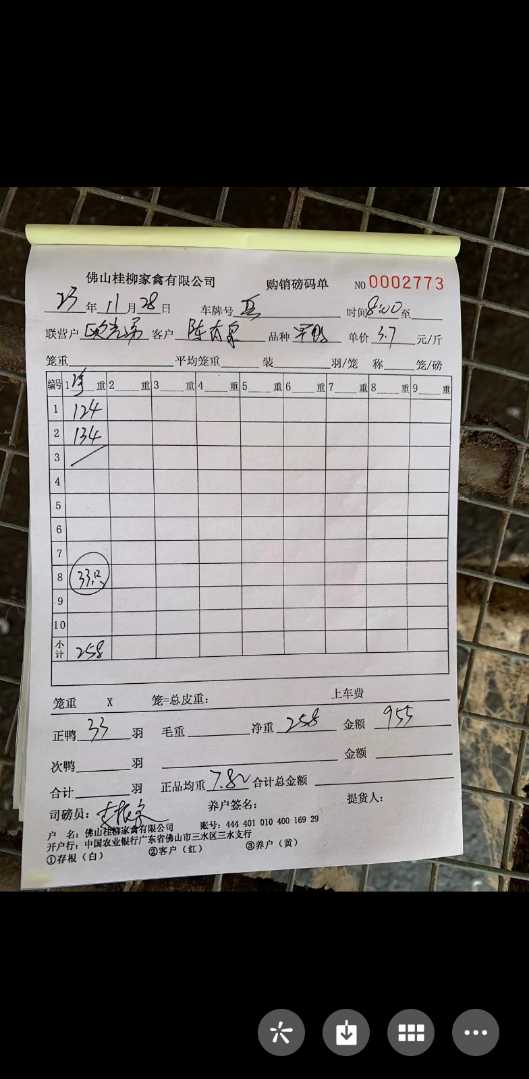 佛山桂柳家禽有限公司 购销磅码单 NO 0002773
23年11月28日 车牌号 时间8:00至
联营户 客户 陈 品种 单价3.7元/斤
笼重 平均笼重 装 羽/笼 称 笼/磅
编号 1净重 2 重 3 重 4 重 5 重 6 重 7 重 8 重 9 重
1 124
2 134
3
4
5
6
7
8 33只
9
10
小计 258
笼重 X 笼=总皮重: 上车费
正鸭33羽 毛重 净重258 金额955
次鸭 羽 金额
合计 羽 正品均重7.82 合计总金额
司磅员: 养户签名: 提货人:
户 名:佛山桂柳家禽有限公司 账号:444 401 010 400 169 29
开户行:中国农业银行广东省佛山市三水区三水支行
①存根(白) ②客户(红) ③养户(黄)